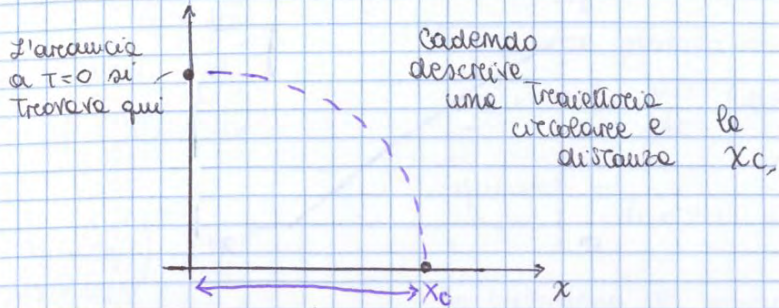 L'arancia
a T=0 si
trovava qui
cadendo
descrive
una traiettoria
circolare e la
distanza xc,
xc
x